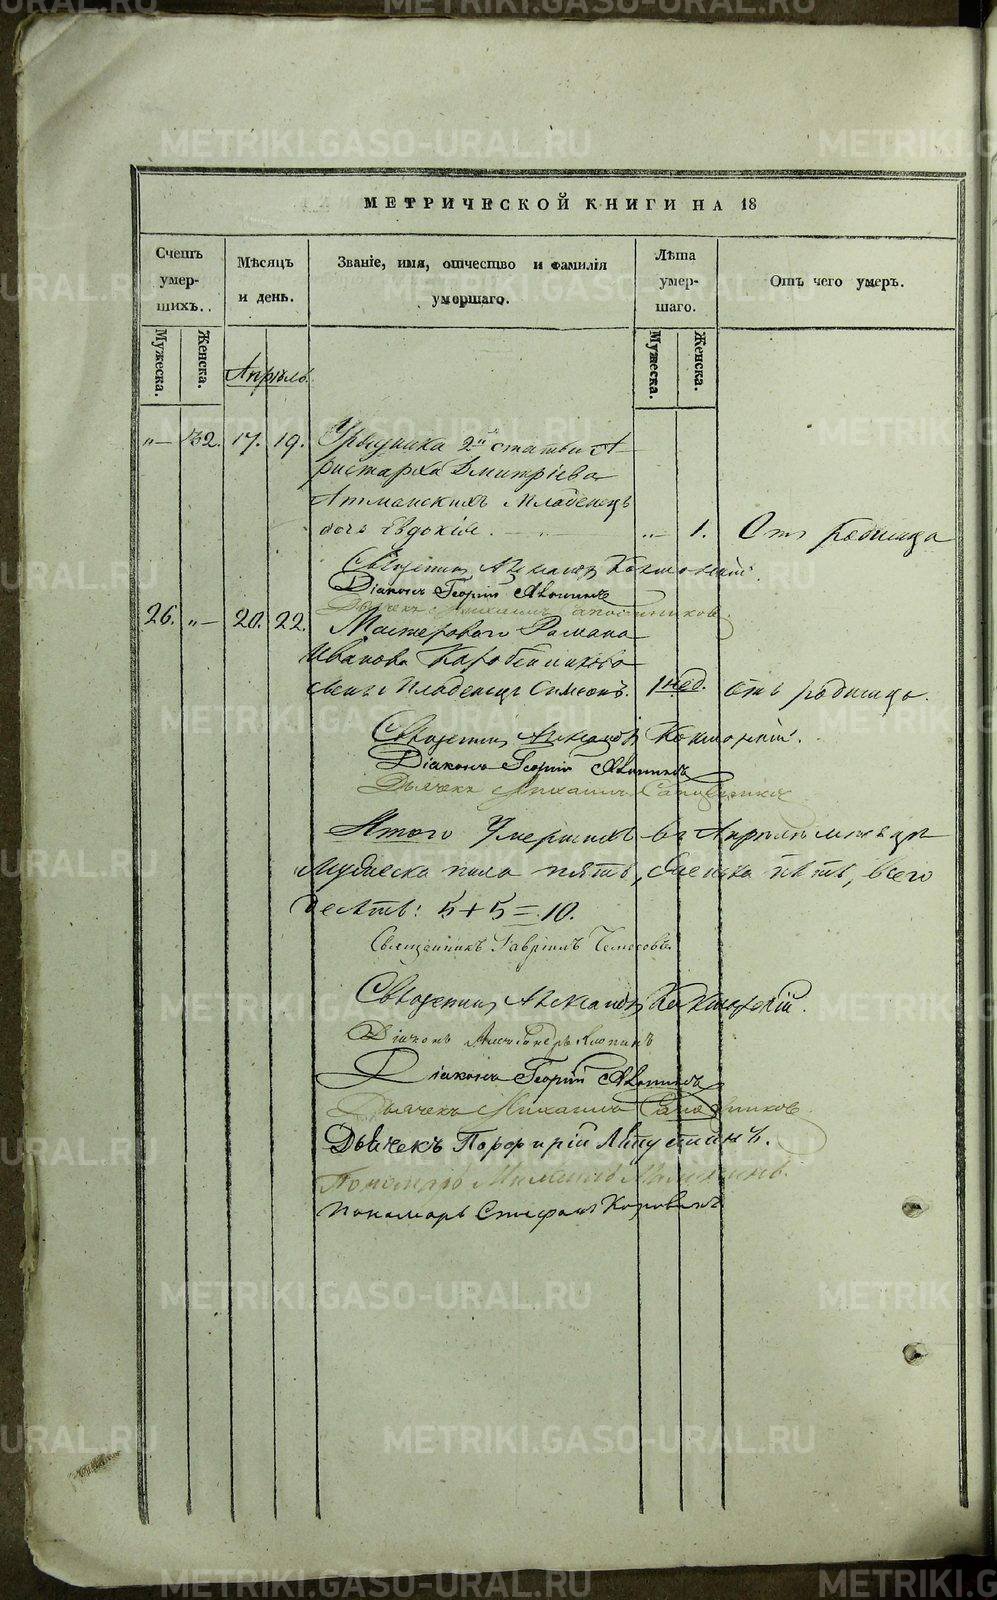 МЕТРИЧЕСКОЙ КНИГИ НА 18
Счетъ умер-шихъ.
Мѣсяцъ и день.
Званіе, имя, отчество и фамилія умершаго.
Лѣта умер-шаго.
Отъ чего умеръ.
Мужеска.
Женска.
Мужеска.
Женска.
Апрѣль.
„— 32. 17. 19. Урядника 2й статьи А-
ристарха Дмитріева
младенецъ
дочь Евдокія. „— 1. Отъ родимца
Священникъ Александръ
Діаконъ Георгій
Дьячекъ Михаилъ Сапожников
26. „— 20. 22. Мастероваго Романа
Иванова Коробейникова
сынъ младенецъ Симеонъ. 1 нед. отъ родимца.
Священникъ Александръ
Діаконъ Георгій
Дьячекъ Михаилъ Сапожников
Итого умершихъ въ Апрѣлѣ мѣсяцѣ
Мужеска пола пять, женска пять, всего
десять: 5+5=10.
Священникъ Гавріилъ
Священникъ Александръ
Діаконъ Александръ
Діаконъ Георгій
Дьячекъ Михаилъ Сапожников
Дьячекъ Порфирій
Пономарь
Пономарь Стефанъ Коровинъ
METRIKI.GASO-URAL.RU